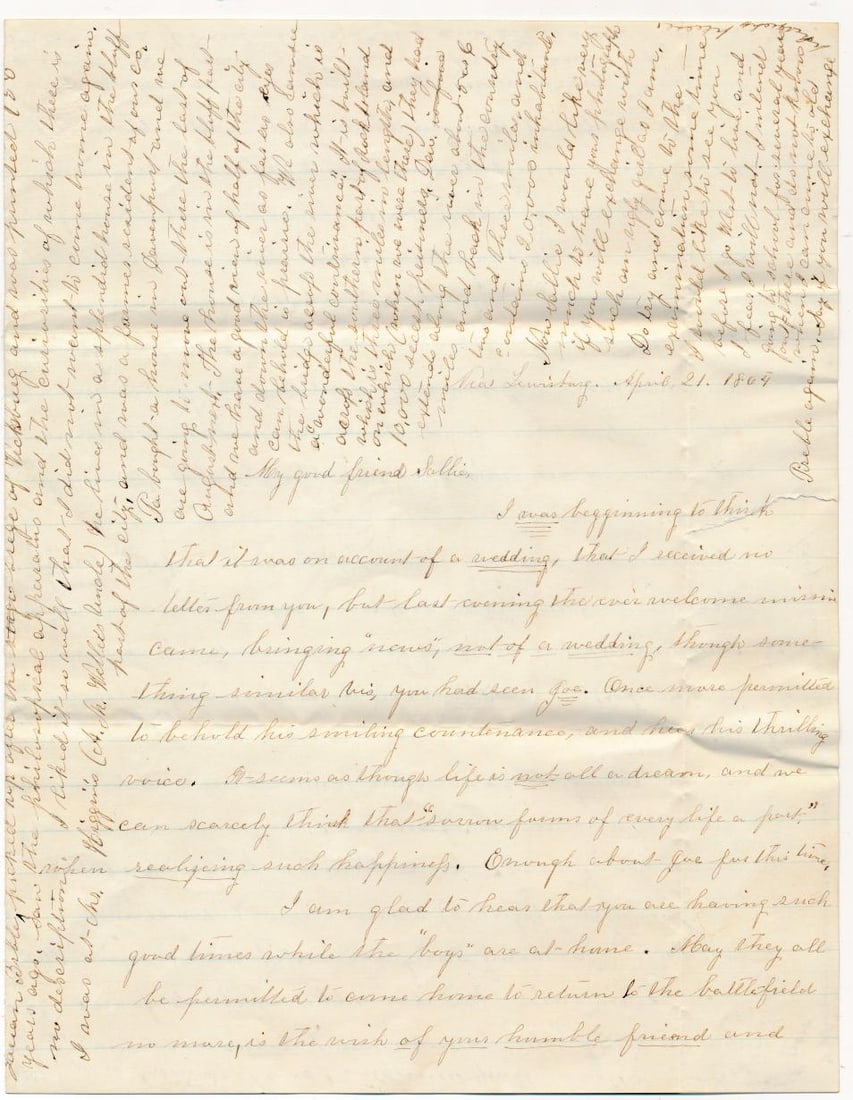 Near Lewisburg. April, 21. 1864
My good friend Sallie,
I was begginning to think
that it was on account of a wedding, that I received no
letter from you, but last evening the ever welcome
came, bringing "news", not of a wedding, though some-
thing similar vis, you had seen Joe. Once more permitted
to behold his smiling countenance, and hear his thrilling
voice. It seems as though life is not all a dream, and we
can scarcely think that "sorrow forms of every life a part"
when realizing such happiness. Enough about Joe for this time,
I am glad to hear that you are having such
good times while the "boys" are at home. May they all
be permitted to come home to return to the battlefield
no more, is the wish of your humble friend and
picked up after the siege of Vicksburg and was printed
years ago, saw the philosophical apparatus and the curiosities of which there is
no description. I liked it so well that I did not want to come home again.
I was at Mr. Higgins (A. M. uncle) he lives in a splendid house in the bluff
part of the city, and was a former resident of our co.
Pa bought a house in Davenport and we
are going to move out there the last of
August next. The house is in the bluff part
and we have a good view of half of the city
and down the river as far as eyes
can behold is prairie. We also came
the bridge across the river which is
a "wonderful contrivance" It is built
across the southern part of Rock Island
which is three miles in length, and
on which (when we were there) they had
10,000 secesh prisoners. Dav.
extends along the river about 5 or 6
miles and back in the country
two and three miles and
contains 20,000 inhabitants.
Now Sallie I would like very
much to have your photograph
if you will exchange with
such an ugly girl as I am,
Do try and come to the
examination some time
I would like to see you
before I go West to live and
I fear I will not. I intend
going to school for several years
out there and do not know
when I can come to old
Preble again. Say if you will exchange